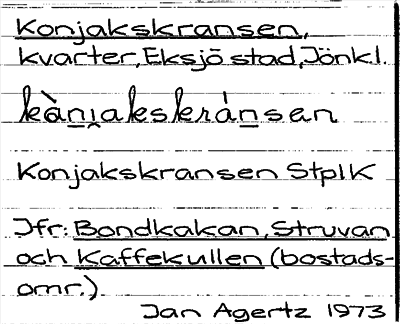 Konjakskransen,
kvarter, Eksjö stad, Jönk.l.
kån̲i̯akskrán̲sen
Konjakskransen StplK
Jfr: Bondkakan, Struvan
och Kaffekullen (bostads-
omr.).
Jan Agertz 1973